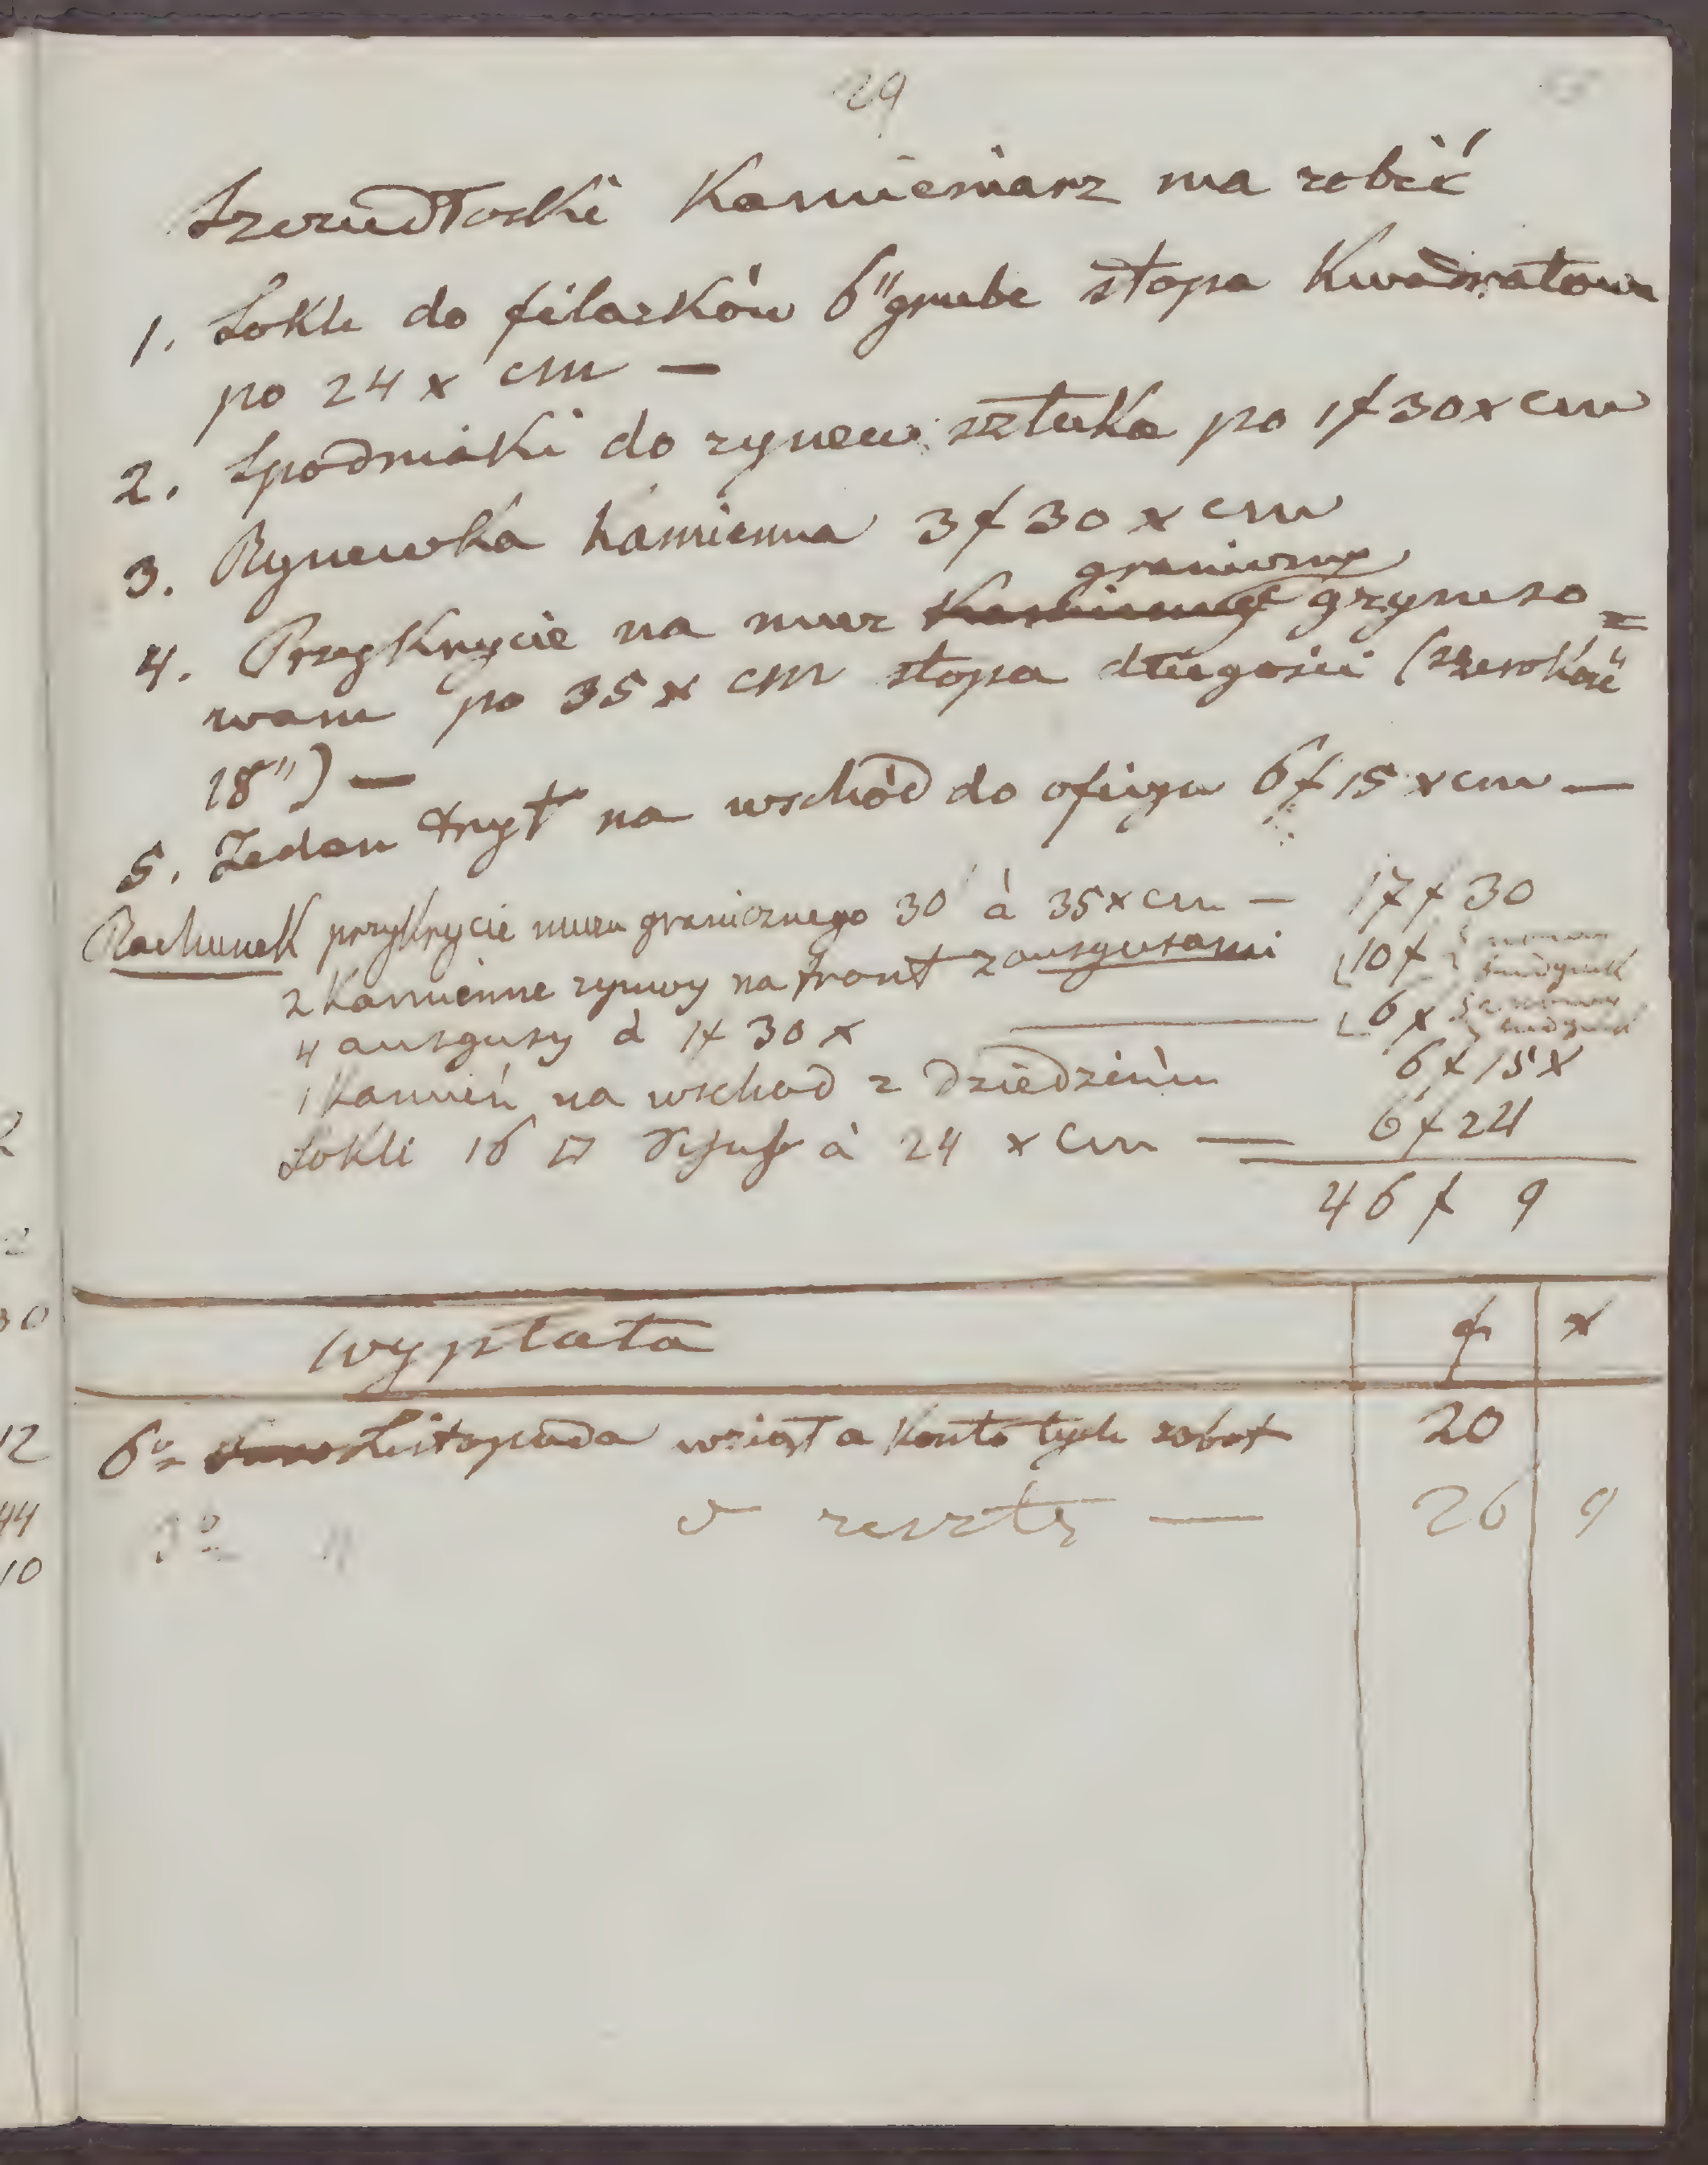 29
Szczudłoski Kamieniarz ma robić
1. Sokle do filarków 6" grube stopa Kwadratowa
po 24 x cm —
2. Spodniaki do rynew sztuka po 1f 30x cm
3. Rynewka kamienna 3f 30 x cm
graniczny
4. Przykrycie na mur gzymso=
wane po 35 x cm stopa długości (szerokość
18") —
5. Jeden tryt na wschód do oficyn 6f 15 x cm —
Rachunek przykrycie muru granicznego 30' à 35x cm — 17f 30
2 Kamienne rynwy na front z ausgusami 10f
4 ausgusy à 1f 30 x — 6f
1 Kamień na wschod z dziedzińcu 6f 15x
Sokli 16 □ à 24 x cm — 6f 24
46 f 9
wypłata f x
6º Listopada wziął a konto tych robot 20
resztę — 26 9
2
30
12
44
10